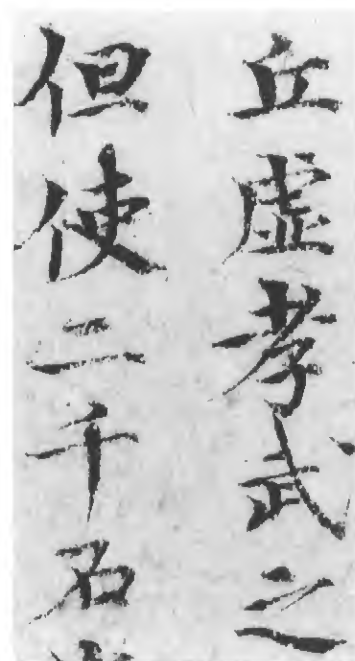 丘虛孝武之
但使二千石